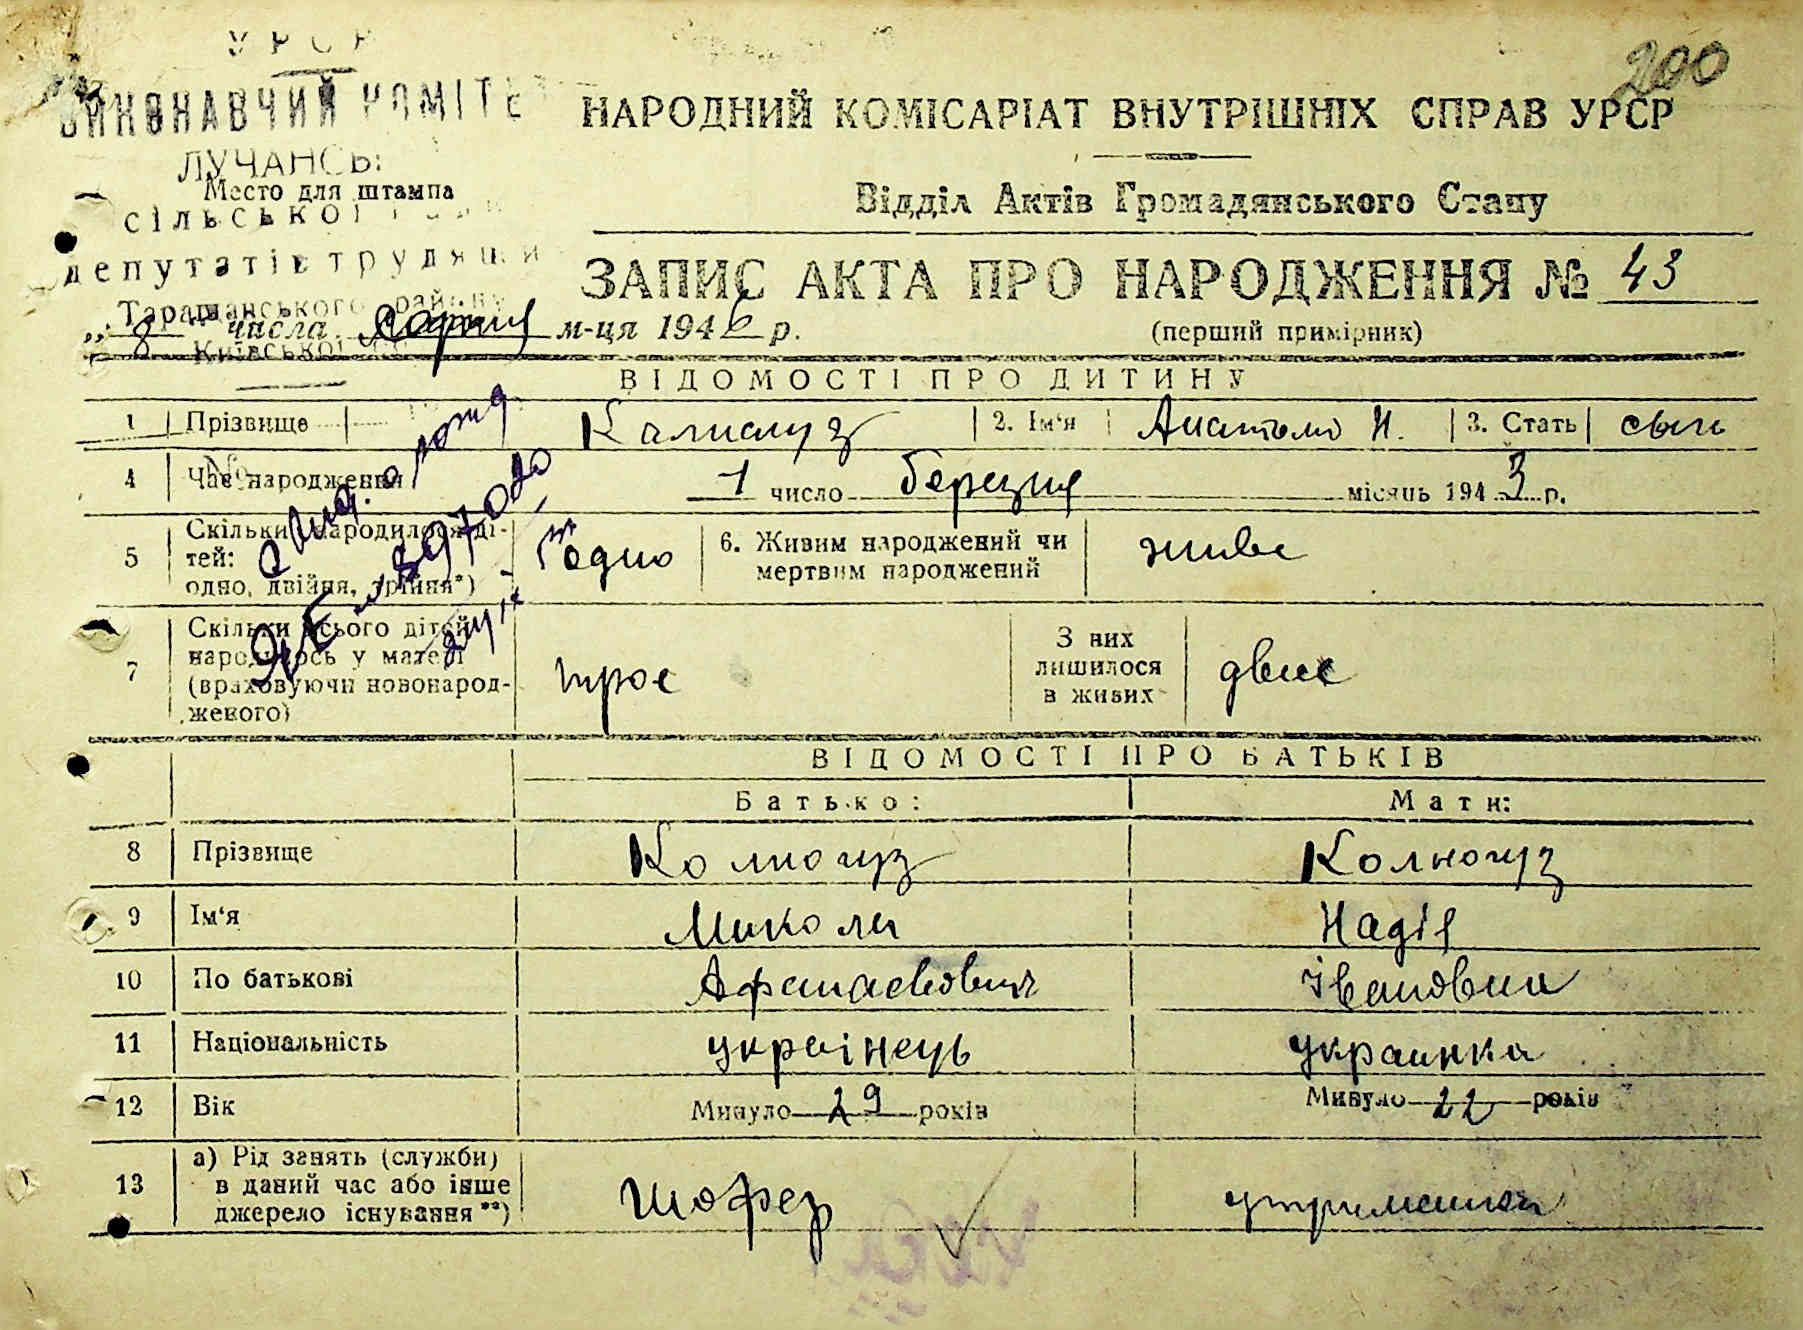 200
УРСР
ВИКОНАВЧИЙ КОМІТЕТ
ЛУЧАНСЬ
Место для штампа
СІЛЬСЬКОЇ
депутатів трудящи
Таращанського району
Київської
НАРОДНИЙ КОМІСАРІАТ ВНУТРІШНІХ СПРАВ УРСР
Відділ Актів Громадянського Стану
ЗАПИС АКТА ПРО НАРОДЖЕННЯ № 43
„ 8 " числа серпня м-ця 1946 р.
(перший примірник)
ВІДОМОСТІ ПРО ДИТИНУ
1 Прізвище Калногуз 2. Ім'я Анатолій Н. 3. Стать сын
4 Час народження 1 число березня місяць 1943 р.
5 Скільки народилося ді-
тей:
одно, двійня, трійня*) одно
6. Живим народжений чи
мертвим народжений живе
7 Скільки всього дітей
народилось у матері
(враховуючи новонарод-
женого) троє
З них
лишилося
в живих двоє
ВІДОМОСТІ ПРО БАТЬКІВ
Батько: Мати:
8 Прізвище Колногуз Колногуз
9 Ім'я Микола Надія
10 По батькові Афанасьевич Івановна
11 Національність українець украинка
12 Вік Минуло 29 років Минуло 22 років
13 а) Рід занять (служби)
в даний час або інше
джерело існування**) шофер утриманка